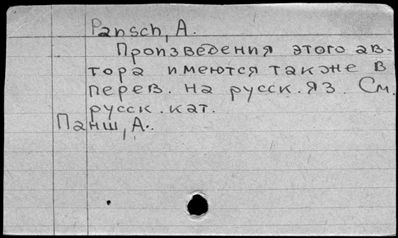 Pansch, A.
Произведения этого ав-
тора имеются также в
перев. на русск. яз. См.
русск. кат.
Панш, А.